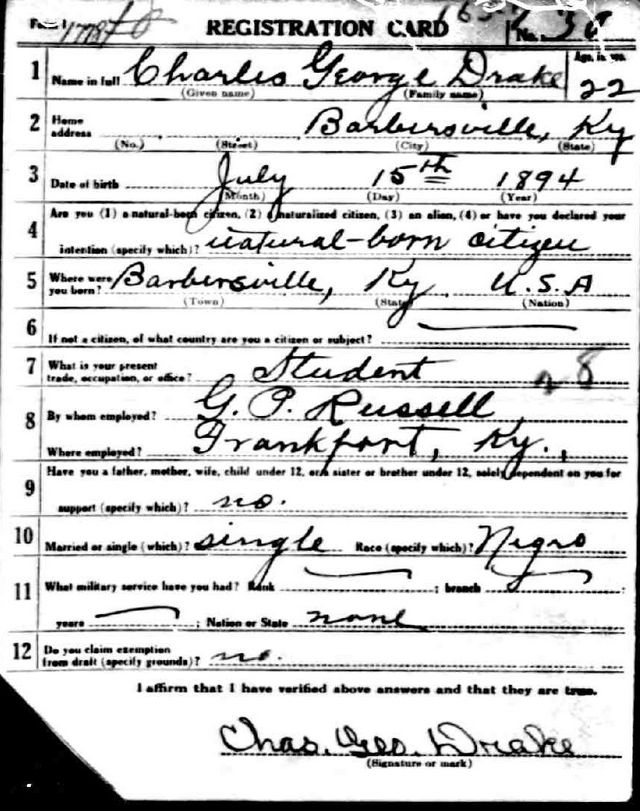 Form 1 REGISTRATION CARD No. 38
1 Name in full Charles George Drake Age, in yrs. 22
(Given name) (Family name)
2 Home address Barbersville, Ky
(No.) (Street) (City) (State)
3 Date of birth July 15th 1894
(Month) (Day) (Year)
4 Are you (1) a natural-born citizen, (2) a naturalized citizen, (3) an alien, (4) or have you declared your
intention (specify which)? natural-born citizen
5 Where were you born? Barbersville, Ky U.S.A
(Town) (State) (Nation)
6 If not a citizen, of what country are you a citizen or subject?
7 What is your present trade, occupation, or office? Student 28
8 By whom employed? G. P. Russell
Where employed? Frankfort, Ky.,
9 Have you a father, mother, wife, child under 12, or a sister or brother under 12, solely dependent on you for
support (specify which)? no.
10 Married or single (which)? single Race (specify which)? Negro
11 What military service have you had? Rank ; branch ;
years ; Nation or State none
12 Do you claim exemption from draft (specify grounds)? no.
I affirm that I have verified above answers and that they are true.
Chas. Geo. Drake
(Signature or mark)